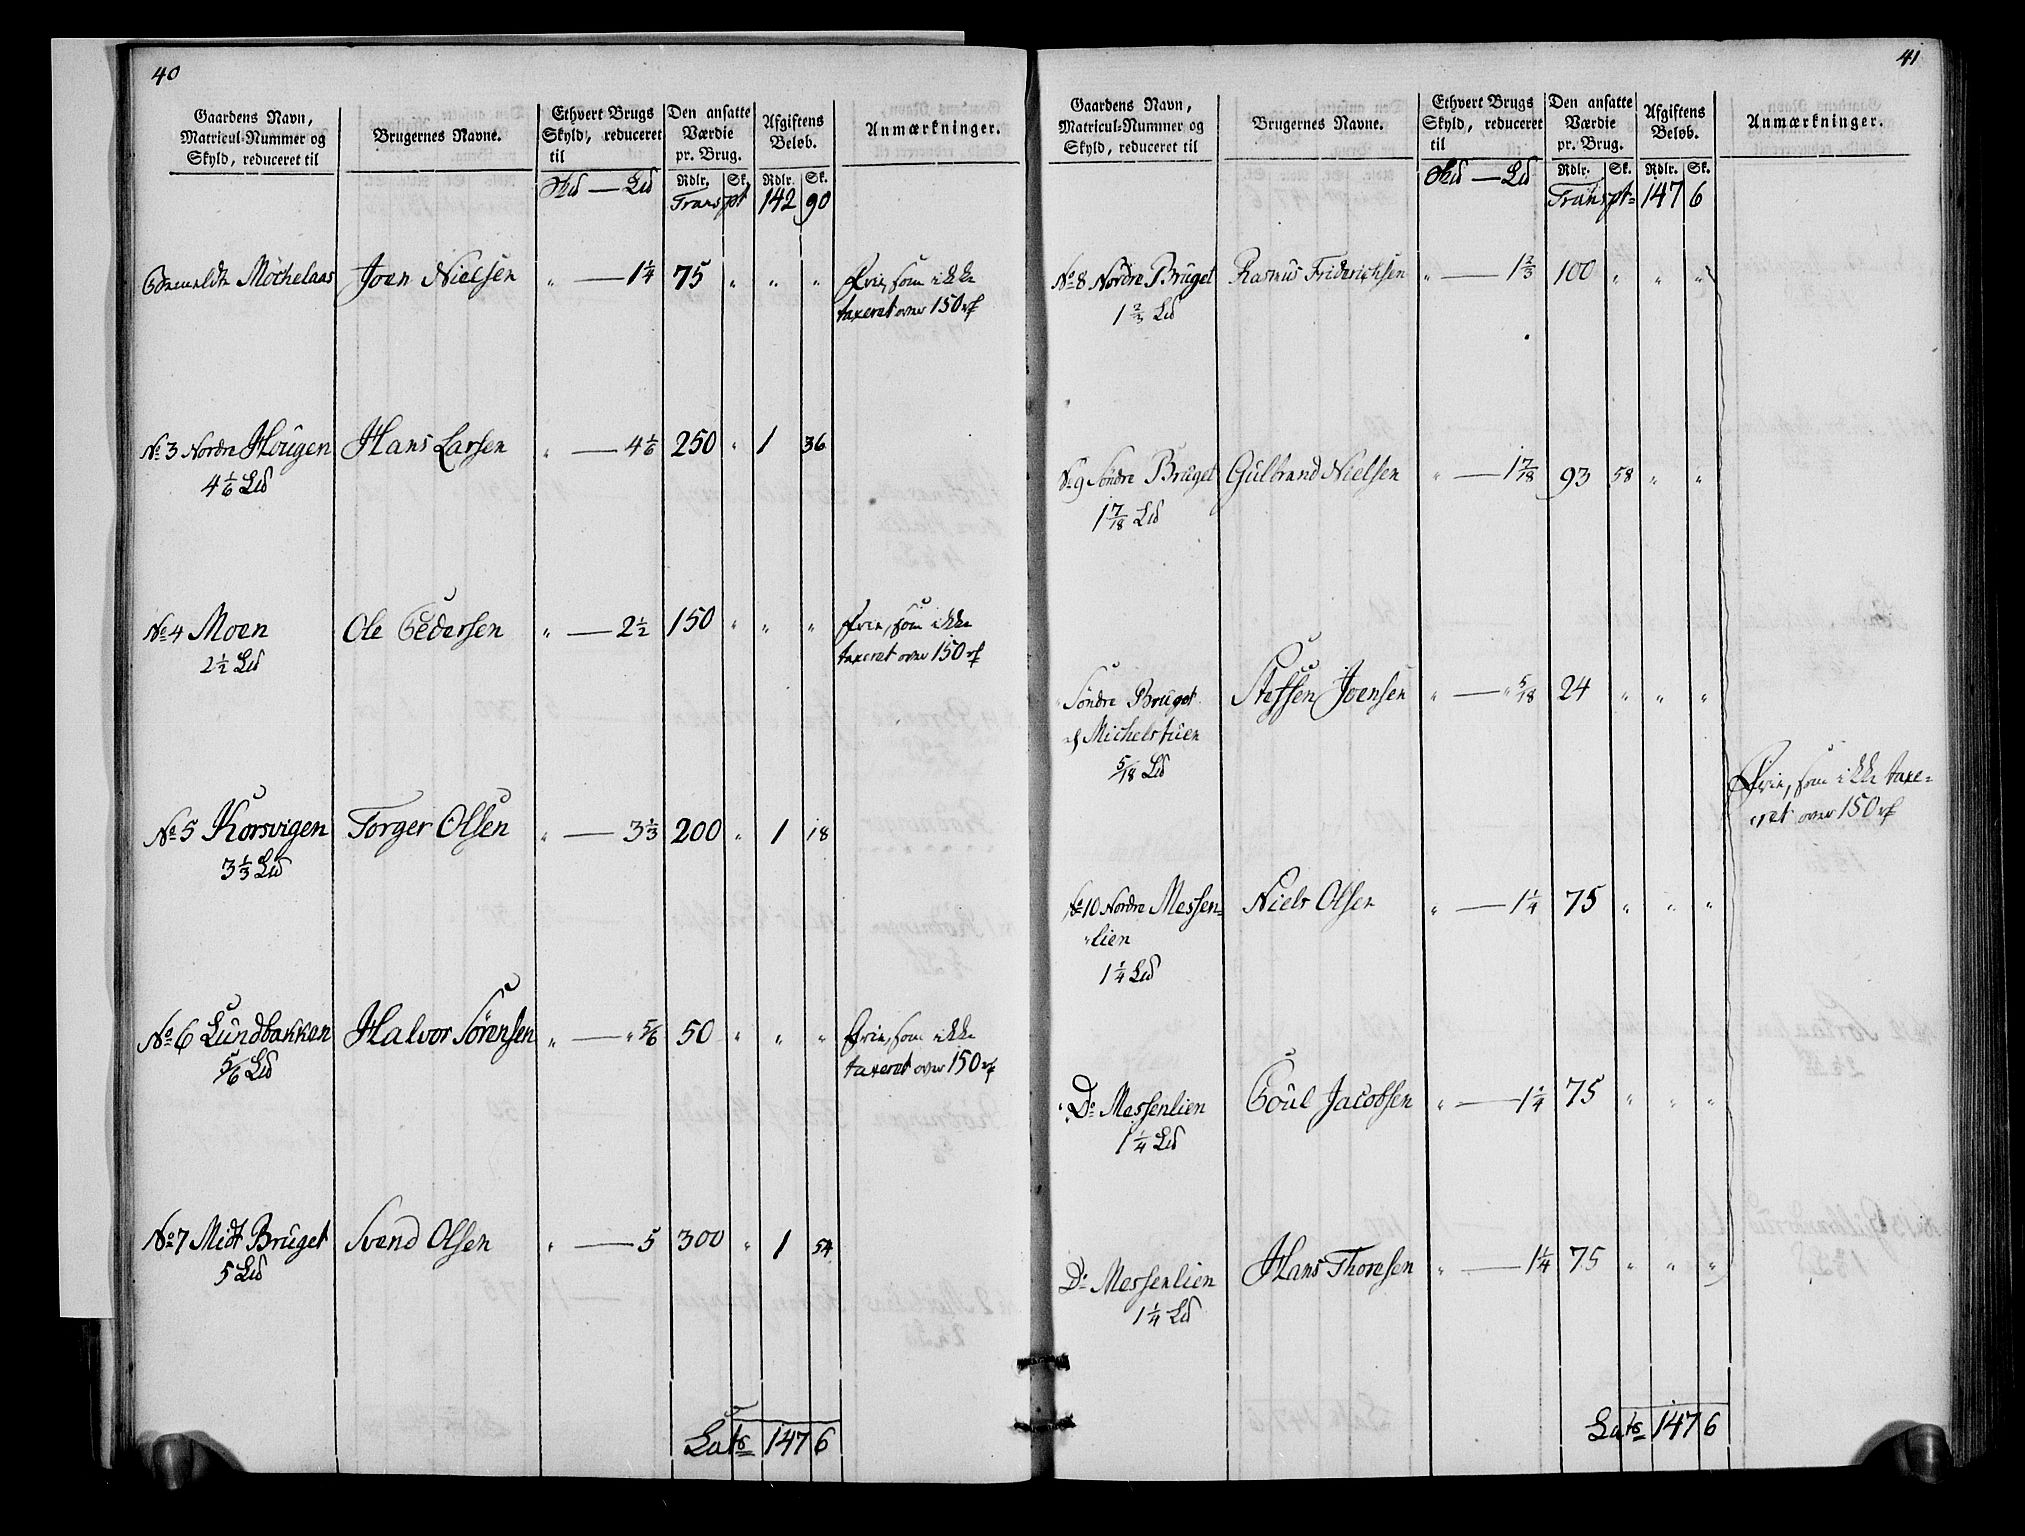 40
Gaardens Navn, Matricul-Nummer og Skyld, reduceret til | Brugernes Navne. | Ethvert Brugs Skyld, reduceret til | Den ansatte Værdie pr. Brug. | Afgiftens Beløb. | Anmærkninger.
Ld | Rdlr. | Sk. | Rdlr. | Sk.
Transpt 142 90
Mochelaas | Joen Nielsen | " — 1 1/4 | 75 | " | " | " | Frie, som ikke
taxeret over 150 rd
No 3 Nordre Hougen | Hans Larsen | " — 4 1/6 | 250 | " | 1 | 36
4 1/6 Ld
No 4 Moen | Ole Pedersen | " — 2 1/2 | 150 | " | " | " | Frie, som ikke
2 1/2 Ld | taxeret over 150 rd
No 5 Korsvigen | Torger Olsen | " — 3 1/3 | 200 | " | 1 | 18
3 1/3 Ld
No 6 Lundbakken | Halvor Sörensen | " — " 5/6 | 50 | " | " | " | Frie, som ikke
5/6 Ld | taxeret over 150 rd
No 7 Midt Bruget | Svend Olsen | " — 5 | 300 | " | 1 | 54
5 Ld
Lats 147 6
41
Gaardens Navn, Matricul-Nummer og Skyld, reduceret til | Brugernes Navne. | Ethvert Brugs Skyld, reduceret til | Den ansatte Værdie pr. Brug. | Afgiftens Beløb. | Anmærkninger.
Ld | Rdlr. | Sk. | Rdlr. | Sk.
Transpt 147 6
No 8 Nordre Bruget | Rasmus Friderichsen | " — 1 2/3 | 100 | " | " | "
1 2/3 Ld
No 9 Söndre Bruget | Gulbrand Nielsen | " — 1 7/18 | 93 | 58 | " | "
1 7/18 Ld
Söndre Bruget | Steffen Joensen | " — " 5/18 | 24 | " | " | "
Michelstuen
5/18 Ld
Frie, som ikke taxe-
ret over 150 rd
No 10 Nordre Messen- | Niels Olsen | " — 1 1/4 | 75 | " | " | "
lien
1 1/4 Ld
Do Messenlien | Poul Jacobsen | " — 1 1/4 | 75 | " | " | "
1 1/4 Ld
Do Messenlien | Hans Thoresen | " — 1 1/4 | 75 | " | " | "
1 1/4 Ld
Lats 147 6